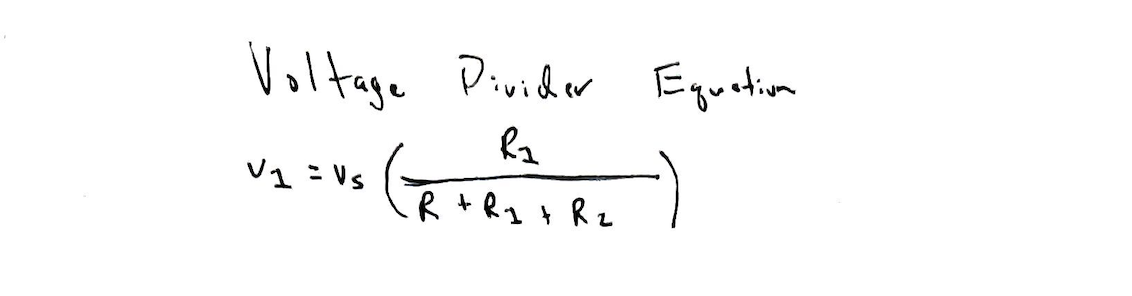 Voltage Divider Equation
v1 = vs (R1 / (R + R1 + R2))